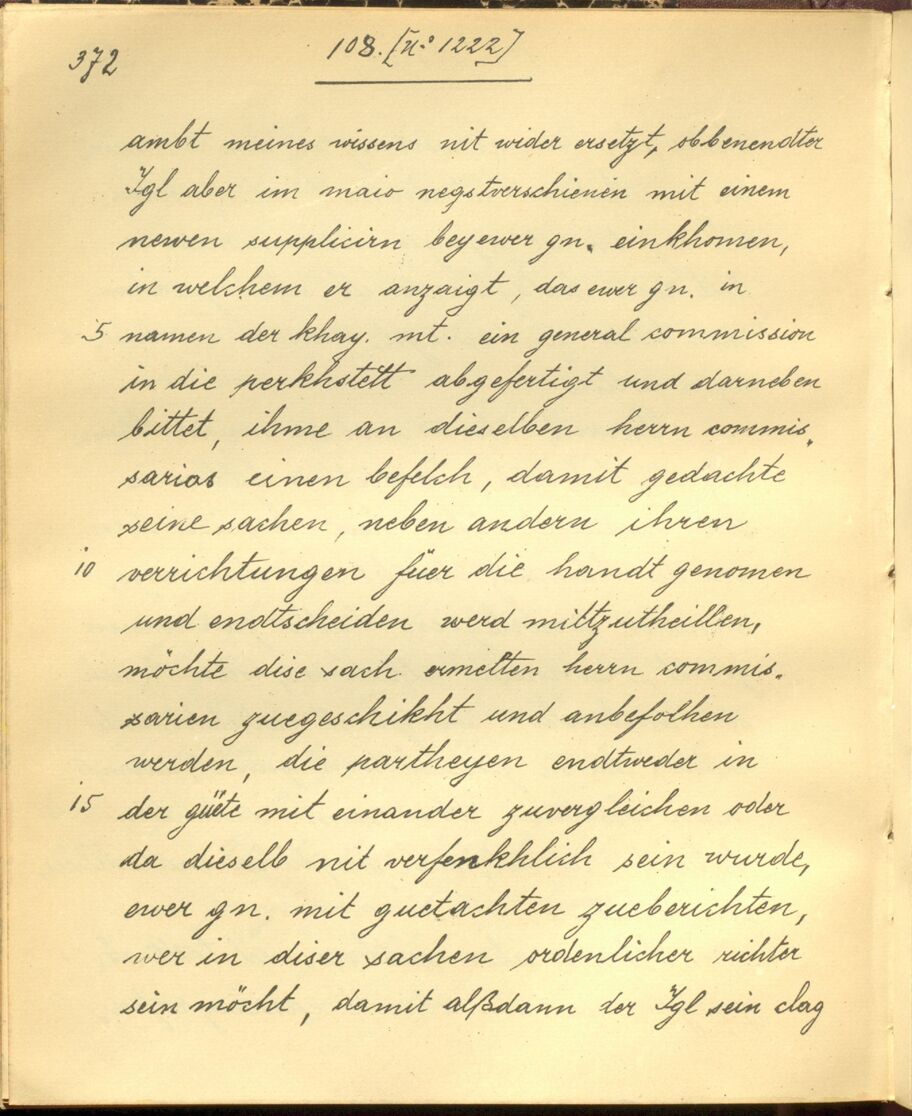 372
108. [N:o 1222]
ambt meines wissens nit wider ersetzt, obbenendter
Igl aber im maio negstverschienen mit einem
newen supplicirn bey ewer gn. einkhomen,
in welchem er anzaigt, das ewer gn. in
5 namen der khay. mt. ein general commission
in die perkhstett abgefertigt und darneben
bittet, ihme an dieselben herrn commis-
sarios einen befelch, damit gedachte
seine sachen, neben andern ihren
10 verrichtungen füer die handt genomen
und endtscheiden werd mittzutheillen,
möchte dise sach ermelten herrn commis-
sarien zuegeschikht und anbefolhen
werden, die partheyen endtweder in
15 der güete mit einander zuvergleichen oder
da dieselb nit verfenkhlich sein wurde,
ewer gn. mit guetachten zueberichten,
wer in diser sachen ordenlicher richter
sein möcht, damit alßdann der Igl sein clag